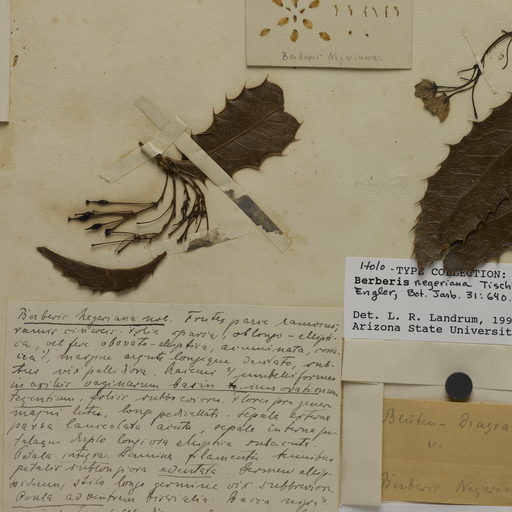 Berberis Negeriana.
Holo - TYPE COLLECTION:
Berberis negeriana Tisch
Engler, Bot. Jarb. 31: 640.
Det. L. R. Landrum, 199
Arizona State Universit
Berberis Negeriana nob. Frutex parce ramosus,
ramis cinereis. Folia sparsa, oblongo-ellipti-
ca, vel fere obovato-elliptica, acuminata,
margine argute longeque dentato, sub-
tus vix pallidiora. Racemi umbelliformes
in axillis
tegentium, foliis subbreviores. Flores pro genere
magni lutei, longe pedicellati. Sepala externa
parva lanceolata acuta, sepala interna pe-
talaque duplo longiora elliptica
Petala integra. Stamina filamentis tenuibus
petalis sublongiora edentata. Germen ellip-
soideum, stilo longo germine vix subbreviore
Ovula ad ventrem Bacca nigra
Blüten-Diagra
v.
Berberis Negeria